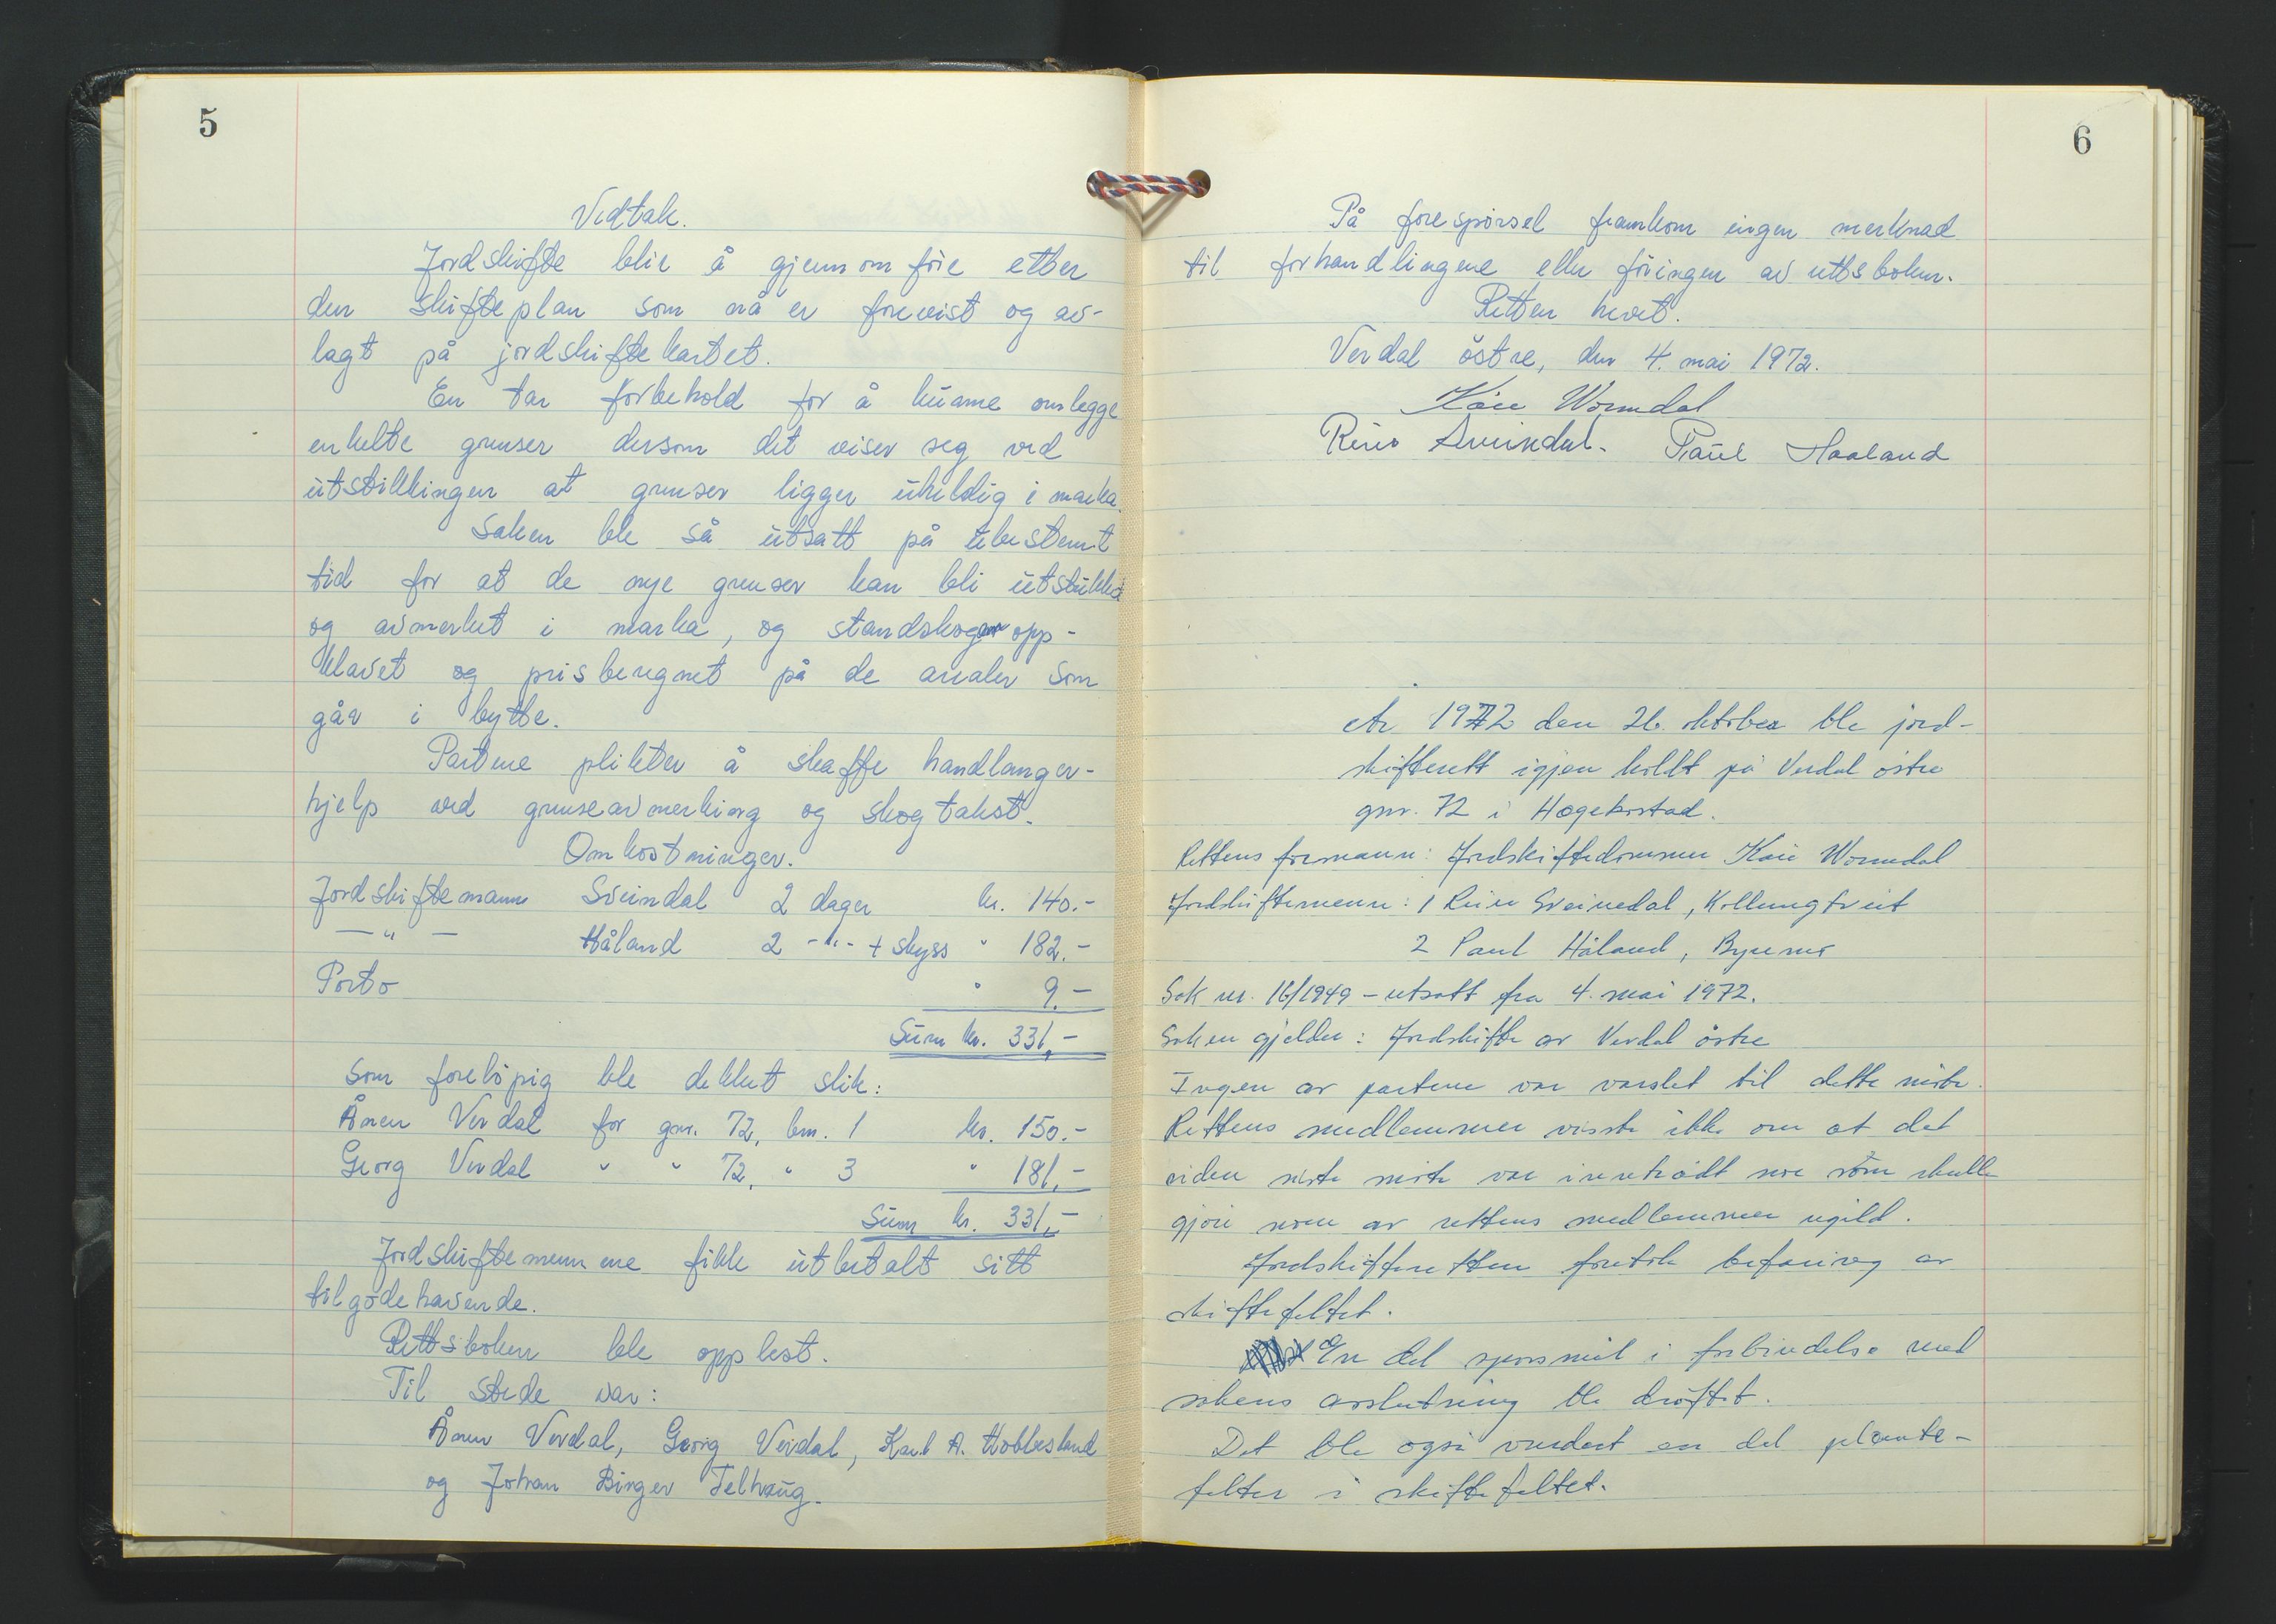 5
Vedtak.
Jordskifte blir å gjennomføre etter
den skifteplan som nå er forevist og av-
lagt på jordskiftekartet.
En tar forbehold for å kunne omlegge
enkelte grenser dersom det viser seg ved
utstikkingen at grenser ligger uheldig i marka.
Saken ble så utsatt på ubestemt
tid for at de nye grenser kan bli utstukket
og avmerket i marka, og standskogen opp-
klavet og prisberegnet på de arealer som
går i bytte.
Partene plikter å skaffe handlanger-
hjelp ved grenseavmerking og skogtakst.
Omkostninger.
Jordskiftemann Sveindal 2 dager kr. 140.-
— " — Håland 2 -"- + skyss " 182.-
Porto " 9.-
Sum kr. 331,-
Som foreløpig ble dekket slik:
Ånen Verdal for gnr. 72, bnr. 1 kr. 150.-
Georg Verdal " " 72, " 3 " 181,-
Sum kr. 331,-
Jordskiftemennene fikk utbetalt sitt
tilgodehavende.
Rettsboken ble opplest.
Til stede var:
Ånen Verdal, Georg Verdal, Karl A. Hobbesland
og Johan Binger Telhaug.
6
På forespørsel framkom ingen merknad
til forhandlingene eller föringen av rettsboken.
Retten hevet.
Verdal östre, den 4. mai 1972.
Kåre Wormdal
Reino Sveindal. Paul Haaland
År 1972 den 26. oktober ble jord-
skifterett igjen holdt på Verdal östre
gnr. 72 i Hægebostad.
Rettens formann: Jordskiftedommer Kåre Wormdal
Jordskiftemenn: 1 Reino Sveinedal, Kollungtveit
2 Paul Håland, Byremo
Sak nr. 16/1949 - utsatt fra 4. mai 1972.
Saken gjelder: Jordskifte av Verdal östre
Ingen av partene var varslet til dette möte.
Rettens medlemmer visste ikke om at det
siden siste möte var inntrådt noe som skulle
gjöre noen av rettens medlemmer ugild.
Jordskifteretten foretok befaring av
skiftefeltet.
En del spörsmål i forbindelse med
sakens avslutning ble dröftet.
Det ble også vurdert en del plante-
felter i skiftefeltet.